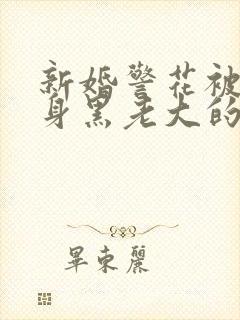 新婚警花被
身黑老大的
畢束麗